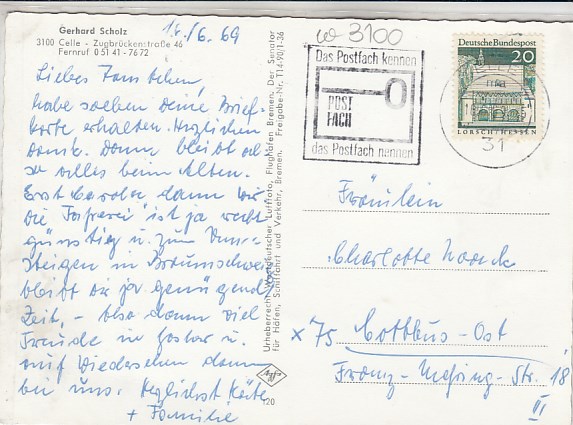 Gerhard Scholz
3100 Celle - Zugbrückenstraße 46
Fernruf 0 51 41 - 76 72
16./6. 69
Liebes Tantchen,
habe soeben Deine Brief-
karte erhalten. Herzlichen
Dank. Dann bleibt al-
so alles beim Alten.
Erst Goslar dann wir
die ist ja recht
günstig u. zum Um-
steigen in Braunschweig
bleibt Dir ja genügend
Zeit, - Also dann viel
Freude in Goslar u.
auf Wiedersehen dann
bei uns. Herzlichst Käte
+ Familie
Urheberrecht Nordwestdeutscher Luftfoto, Flughafen Bremen. Der Senator
für Häfen, Schiffahrt und Verkehr, Bremen. Freigabe-Nr. T14-90/1-36
120
W 3100
Das Postfach kennen
POST
FACH
das Postfach nennen
Deutsche Bundespost
20
LORSCH/HESSEN
31
Fräulein
Charlotte Noack
x 75 Cottbus-Ost
Franz-Mehring-Str. 18
III